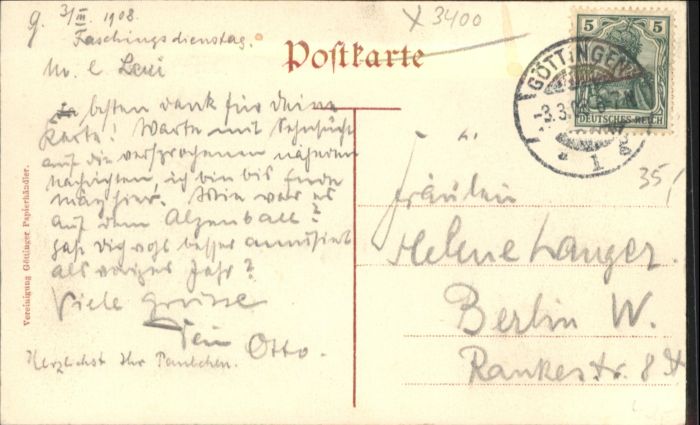 G. 3/III 1908.
Faschingsdienstag.
M. l. Leni
besten Dank für Deine
Karte! Warte mit Sehnsucht
auf die versprochenen näheren
Nachrichten, ich bin bis Ende
März hier. Wie war es
auf dem Alpenball?
Hast Dich wohl besser amüsiert
als voriges Jahr?
Viele Grüsse
Dein Otto.
Herzlichst Ihr Paulchen.
x 3400
Postkarte
5 5
DEUTSCHES REICH
GÖTTINGEN
-3.3.08
1
35/
Fräulein
Helene Langer.
Berlin W.
Rankestr. 8
Vereinigung Göttinger Papierhändler.